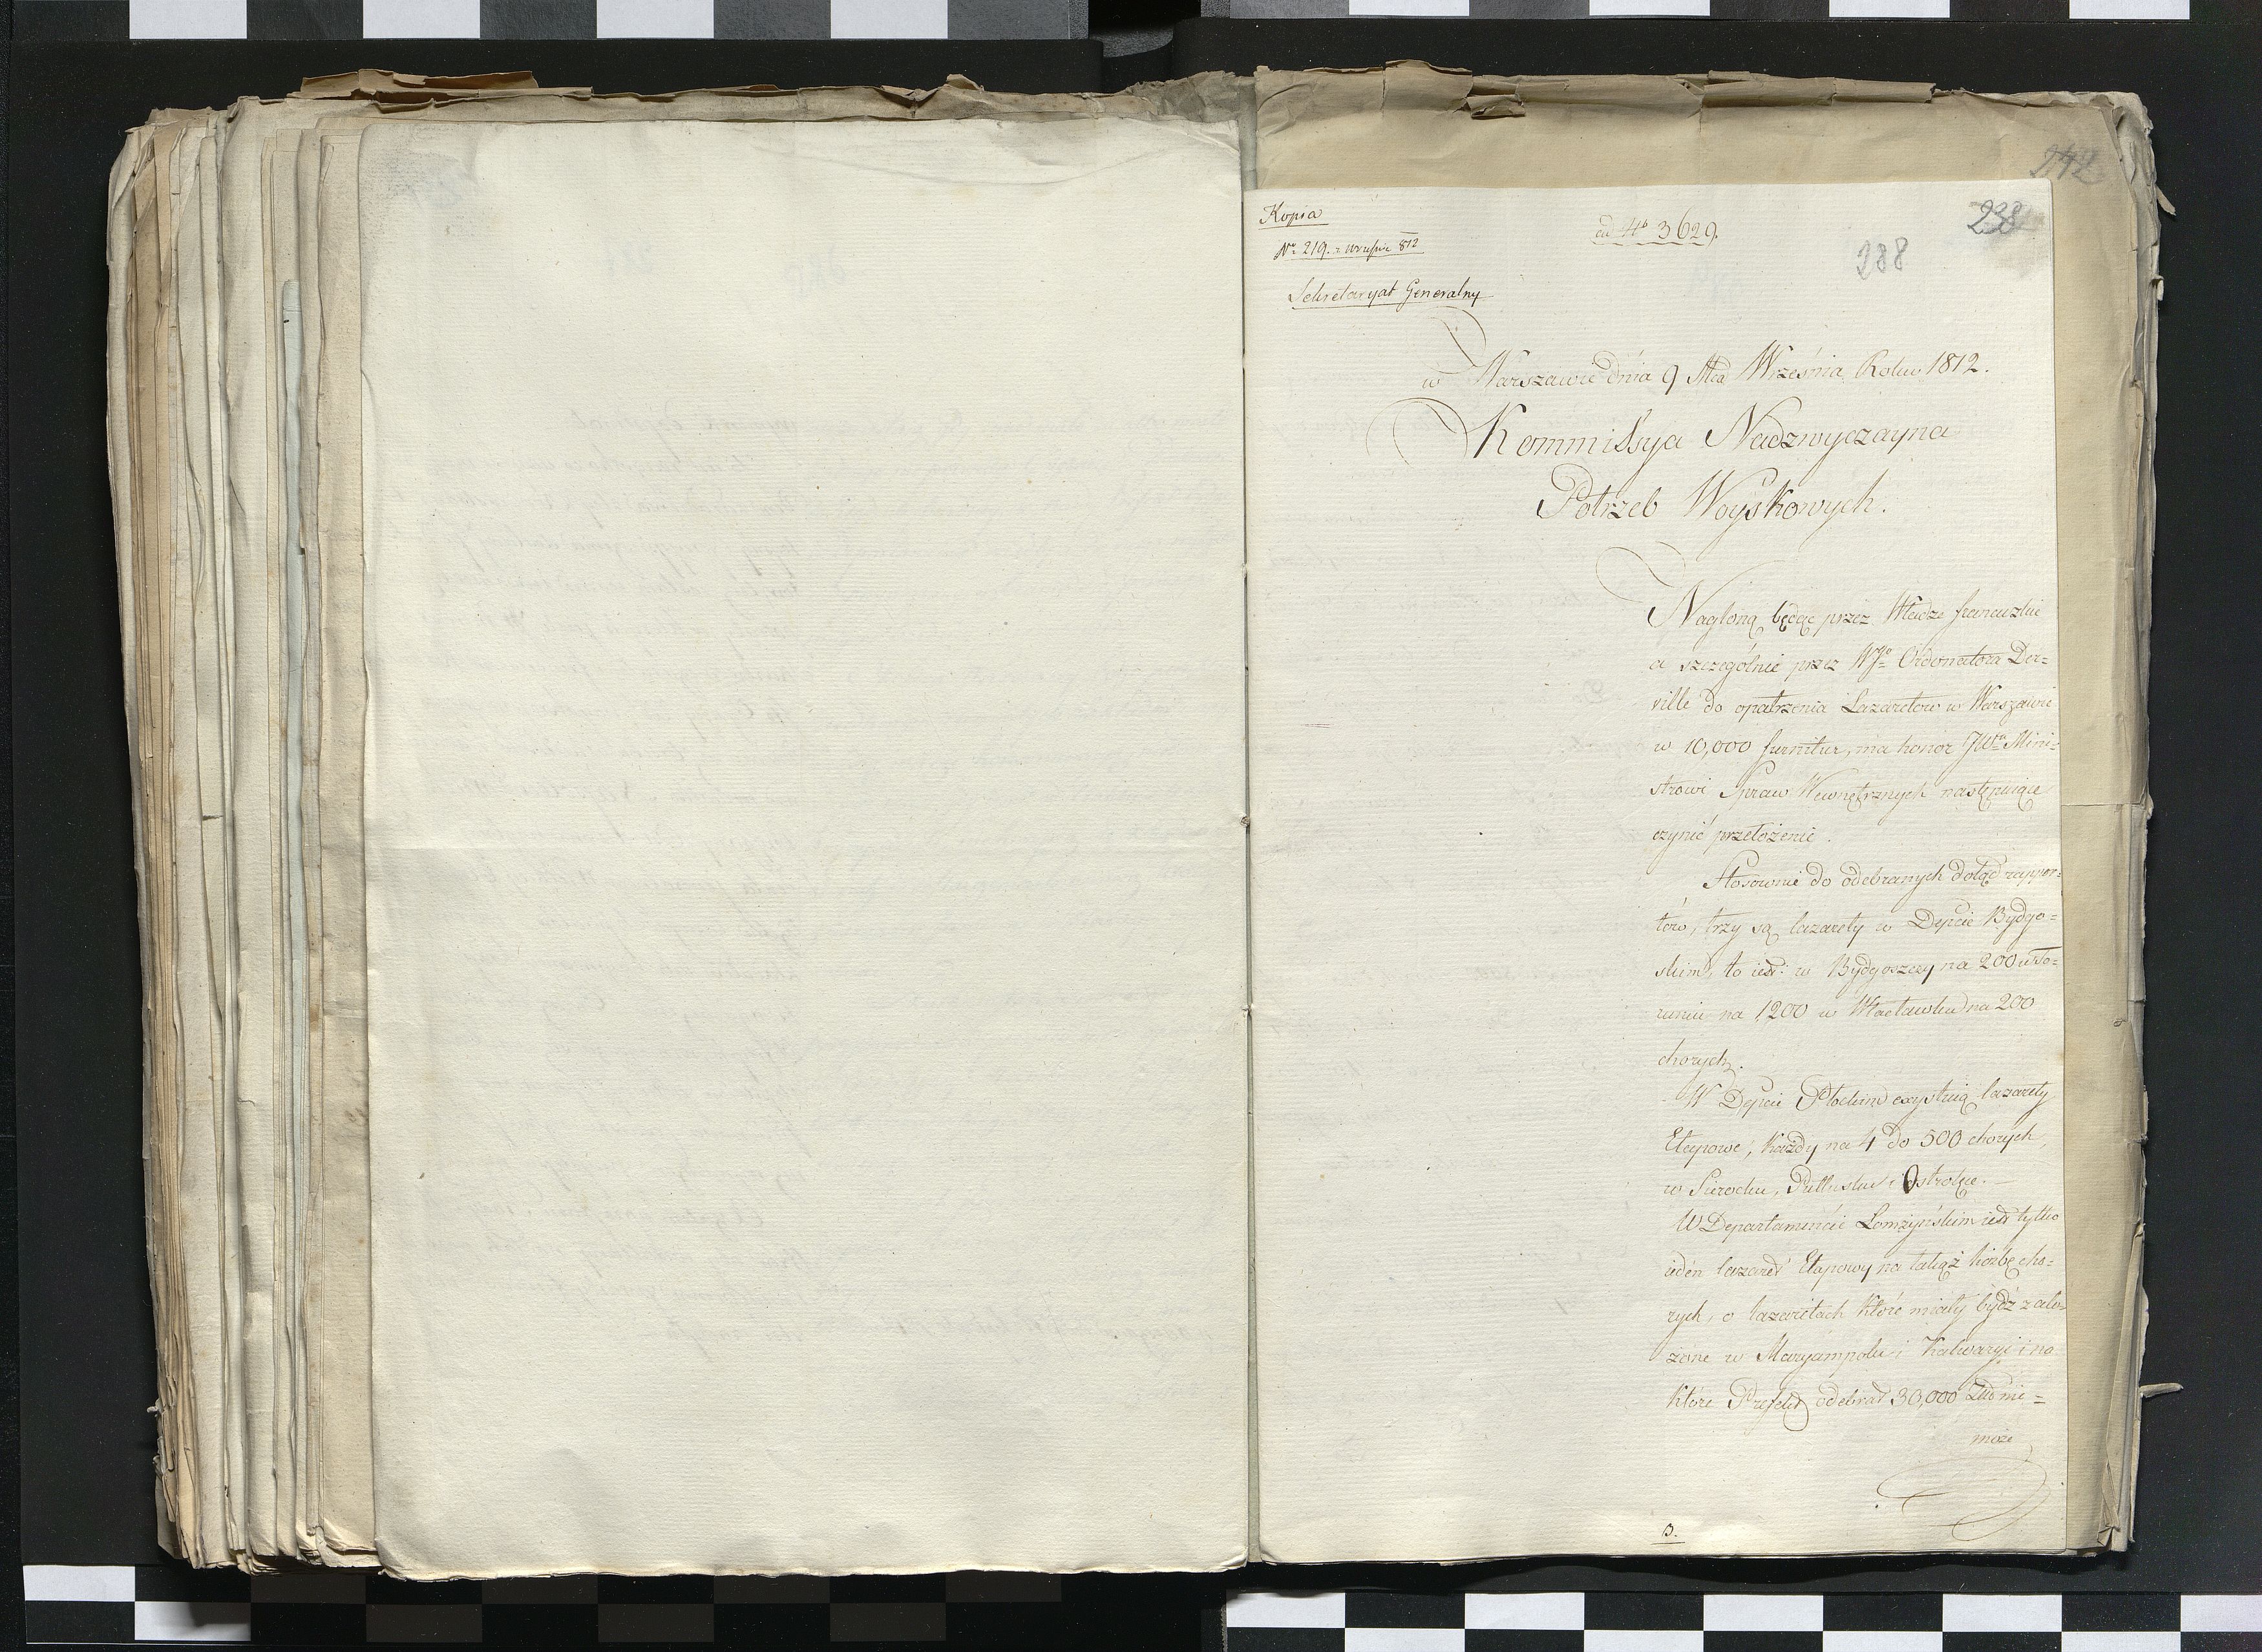 242
238
288
Kopia
ad No 3629.
Nr 219. z września 812
Sekretaryat Generalny
w Warszawie dnia 9 Mca Września Roku 1812.
Kommissya Nadzwyczayna
Potrzeb Woyskowych.
Nagloną będąc przez Władze francuzkie
a szczególnie przez WJo Ordonatora Der=
ville do opatrzenia Lazaretow w Warszawie
w 10,000 furnitur, ma honor JWmu Mini=
strowi Spraw Wewnętrznych następuiące
czynić przełożenie.
Stosownie do odebranych dotąd rappor=
tów, trzy są lazarety w Depcie Bydgo=
skim, to iest: w Bydgoszczy na 200 w To=
runiu na 1200 w Włacławku na 200
chorych.
W Depcie Płockim exystuią lazarety
Etapowe, każdy na 4 do 500 chorych,
w Sierocku, Pułtusku i Ostrołęce.
W Departamencie Lomżyńskim iest tylko
ieden lazaret Etapowy na takąż liczbę cho=
rych, o lazaretach które miały bydź zało=
żone w Maryampolu i Kalwaryi i na
które Prefekt odebrał 30,000 Zł nie=
może
B.